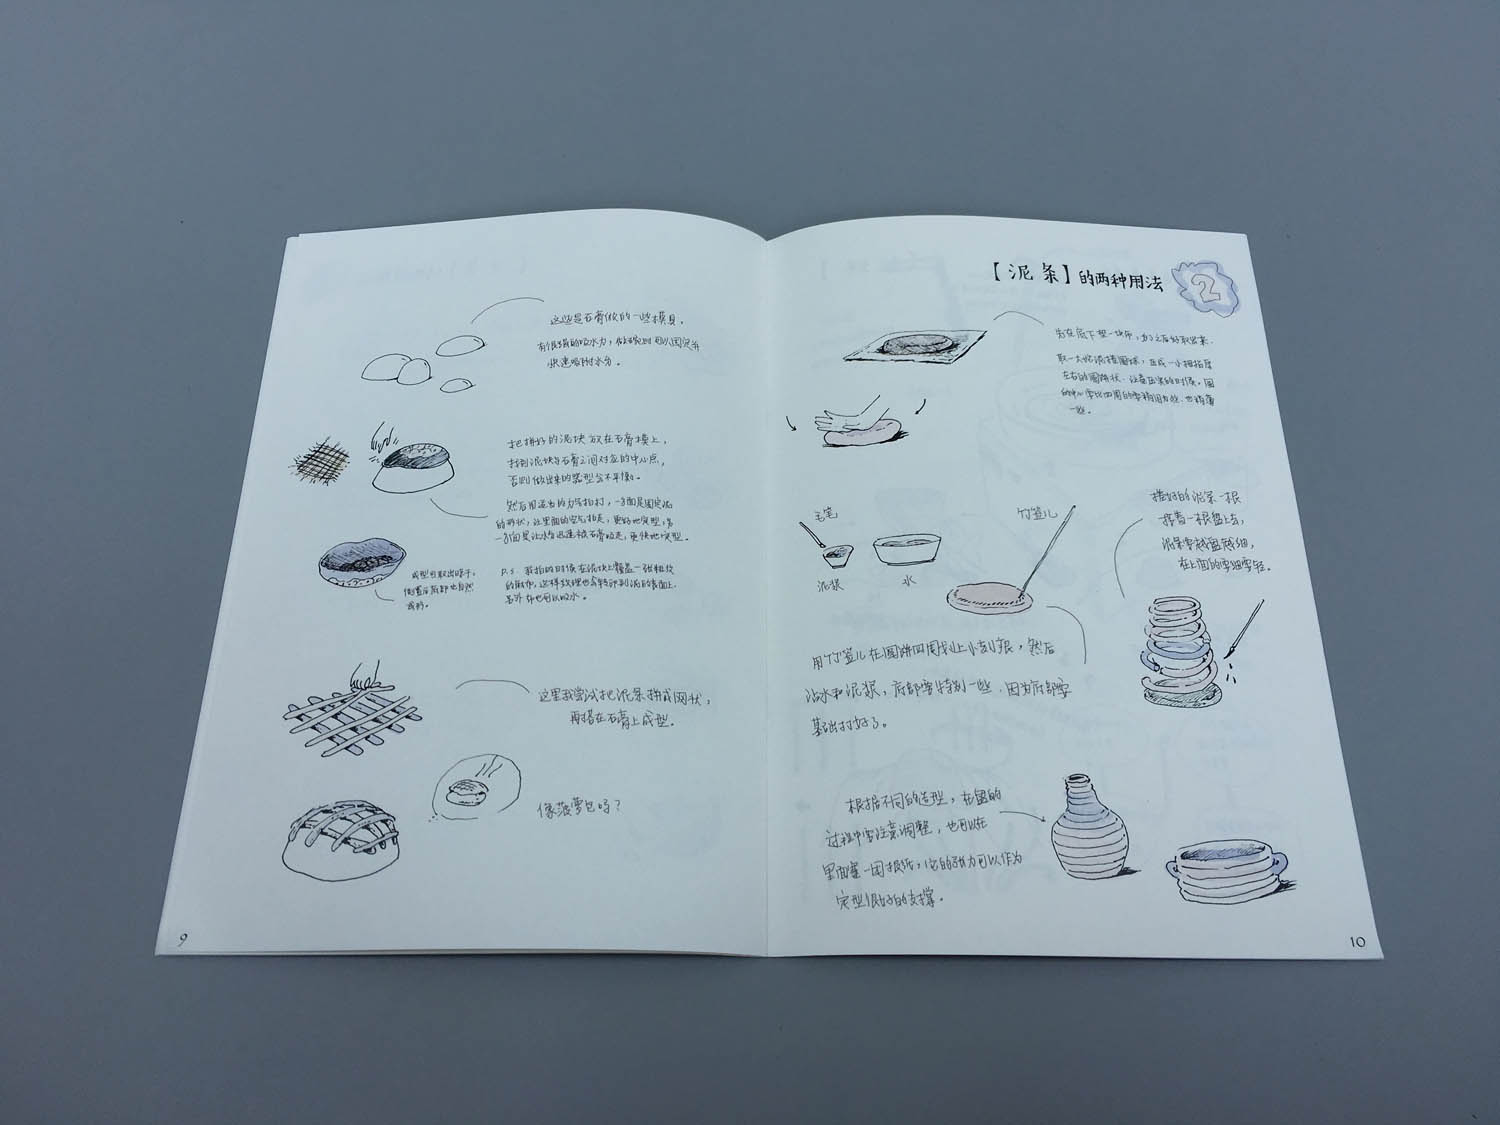 这些是石膏做的一些模具。
有很强的吸水力，做碗时可以固定并
快速吸附水分。
把拼好的泥块放在石膏模上，
找到泥块与石膏之间对应的中心点，
否则做出来的器型会不平衡。
然后用适当的力气拍打，一方面是固定泥
的形状，让里面的空气拍走，更好地定型，另
一方面是让水分迅速被石膏吸走，更快地定型。
P.S. 我拍的时候在泥块上覆盖一张粗纹
的麻布，这样纹理也会转印到泥的表面上，
另外布也可以吸水。
成型后取出晾干，
倒置后底部也自然
成形。
这里我尝试把泥条拼成网状，
再搭在石膏上成型。
像菠萝包吗？
9
【泥条】的两种用法
2
先在底下垫一块布，为了之后好取出来。
取一大坨泥揉圆球，压成一小拇指厚
左右的圆饼状，注意压实的时候，圆
的中心要比四周的要稍微
一些。
毛笔
泥浆
水
竹签儿
搓好的泥条一根
接着一根盘上去，
泥条要越盘越细，
在上面的要细要轻。
用竹签儿在圆饼四周划上小刻痕，然后
沾水和泥浆，底部要特别一些，因为底部要
基础打好了。
根据不同的造型，在盘的
过程中要注意调整，也可以在
里面塞一团报纸，它的张力可以作为
定型很好的支撑。
10